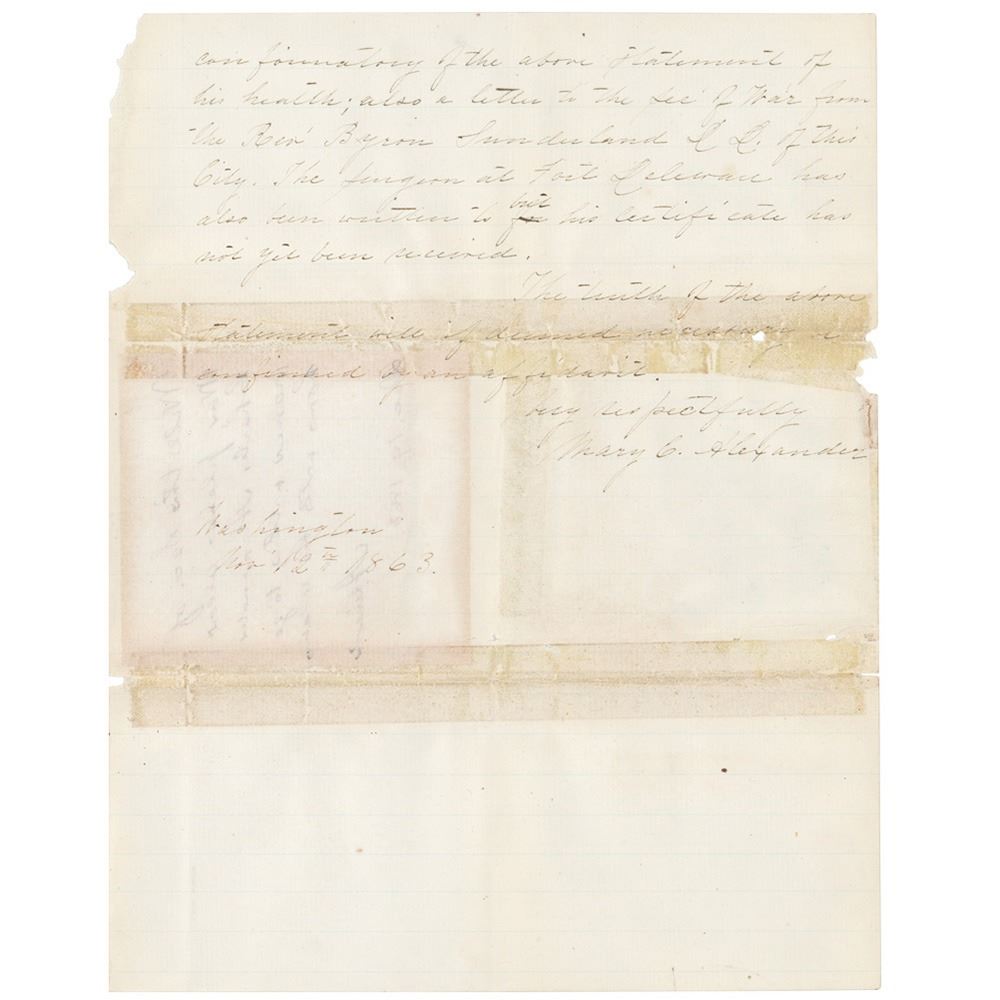 confirmatory of the above statement of
his health; also a letter to the Sec' of War from
the Rev' Byron Sunderland D D. of this
City. The Surgeon at Fort Deleware has
also been written to but his certificate has
not yet been received.
The truth of the above
statement will if deemed necessary be
confirmed by an affidavit.
Very respectfully
Mary C. Alexander
Washington
Nov' 12th 1863.